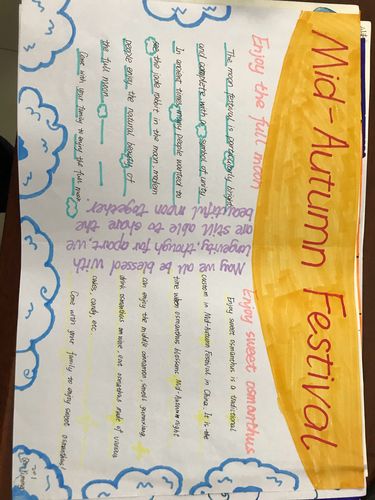 Mid-Autumn Festival
Enjoy the full moon
The moon festival is particularly bright
and complete with a symbol of unity.
In ancient times many people wanted to
see the jade rabbit in the moon modern
people enjoy the natural beauty of
the full moon
Come with your family to enjoy the full moon
May we all be blessed with
longevity, though far apart, we
are still able to share the
beautiful moon together.
Enjoy sweet osmanthus
Enjoy sweet osmanthus is a traditional
custom in Mid-Autumn Festival in China. It is the
time when osmanthus blossoms. Mid-Autumn night
can enjoy the middle cinnamon, smell
drink osmanthus wine, eat osmanthus made of various
cakes, candy, etc.
Come with your family to enjoy sweet osmanthus!